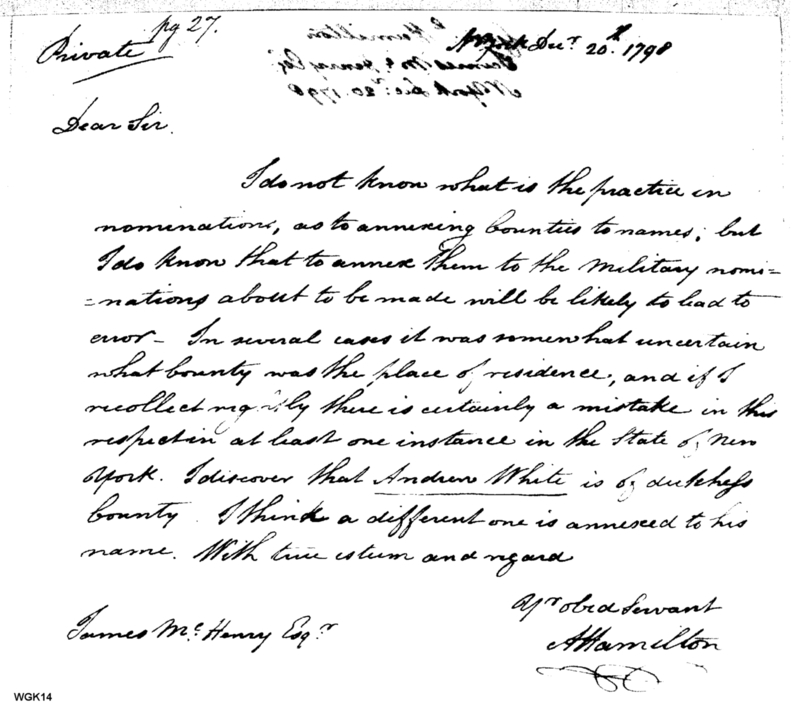 pg 27.
Private
N York Decr 20th 1798
Hamilton
James Mc Henry Esq
N York Dec. 20. 1798
Dear Sir.
I do not know what is the practice in
nominations, as to annexing Counties to names; but
I do know that to annex them to the Military nomi=
=nations about to be made will be likely to lead to
error – In several cases it was somewhat uncertain
what County was the place of residence, and if I
recollect rightly there is certainly a mistake in this
respect in at least one instance in the State of New
York. I discover that Andrew White is of dutchess
County. I think a different one is annexed to his
name. With true esteem and regard
Yr obed Servant
AHamilton
James Mc. Henry Esqr
WGK14